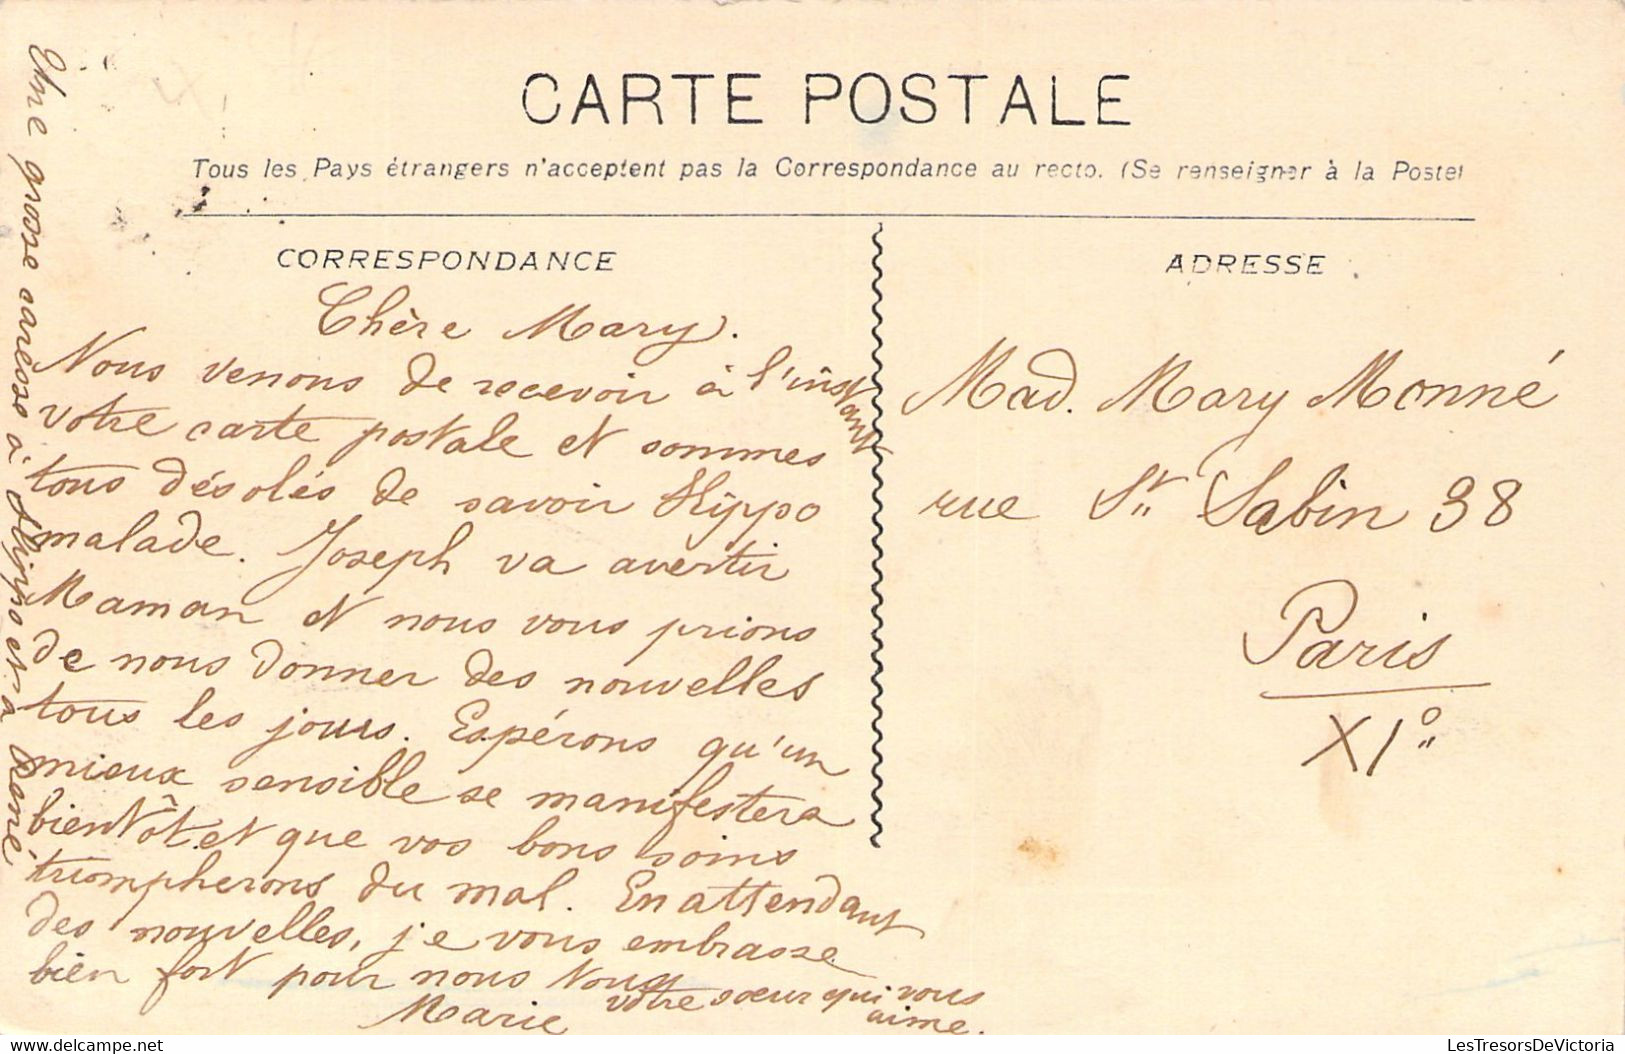 CARTE POSTALE
Tous les Pays étrangers n'acceptent pas la Correspondance au recto. (Se renseigner à la Poste)
CORRESPONDANCE
Chère Mary.
Nous venons de recevoir à l'instant
votre carte postale et sommes
tous désolés de savoir Hippo
malade. Joseph va avertir
Maman et nous vous prions
de nous donner des nouvelles
tous les jours. Espérons qu'un
mieux sensible se manifestera
bientôt et que vos bons soins
triompherons du mal. En attendant
des nouvelles, je vous embrasse
bien fort pour nous tous
votre soeur qui vous
aime.
Marie
Une grosse caresse à Hippo et à René
ADRESSE
Mad. Mary Monné
rue St. Sabin 38
Paris
XI°
© delcampe.net
LesTresorsDeVictoria